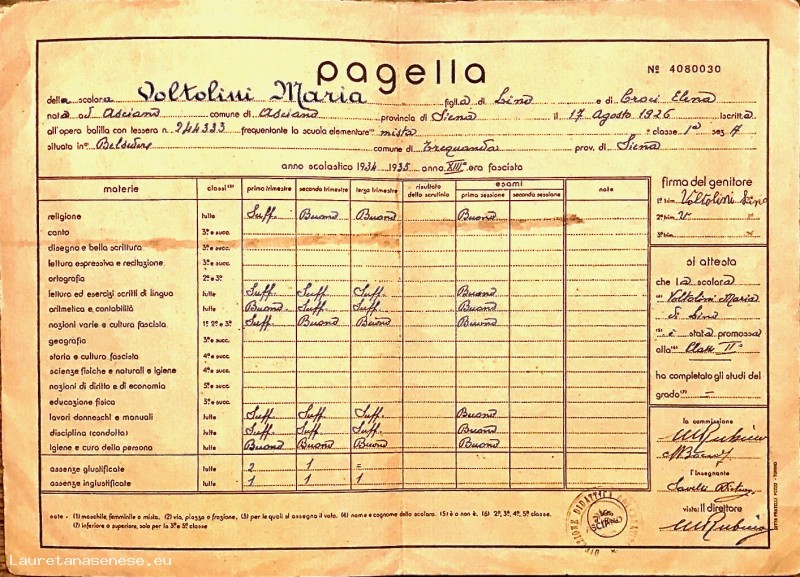 pagella
Nº 4080030
della scolara Voltolini Maria figlia di Lino e di Croci Elena
nata ad Asciano comune di Asciano provincia di Siena il 17 Agosto 1926 Iscritta
all'opera balilla con tessera n. 244333 frequentante la scuola elementare mista classe 1ª sez. A
situata in Belsedere comune di Trequanda prov. di Siena
anno scolastico 1934 1935 anno XIIIº era fascista
materie classi primo trimestre secondo trimestre terzo trimestre risultato dello scrutinio esami prima sessione seconda sessione note
religione tutte Suff. Buono Buono Buono
canto 3ª e succ.
disegno e bella scrittura 3ª e succ.
lettura espressiva e recitazione 3ª e succ.
ortografia 2ª e 3ª
lettura ed esercizi scritti di lingua tutte Suff. Suff. Suff. Buono
aritmetica e contabilità tutte Buono Suff. Suff. Buono
nozioni varie e cultura fascista 1ª 2ª e 3ª Suff. Buono Buono Buono
geografia 3ª e succ.
storia e cultura fascista 4ª e succ.
scienze fisiche e naturali e igiene 4ª e succ.
nozioni di diritto e di economia 5ª e succ.
educazione fisica 3ª e succ.
lavori donneschi e manuali tutte Suff. Suff. Suff. Buono
disciplina (condotta) tutte Suff. Suff. Suff. Buono
igiene e cura della persona tutte Buono Buono Buono Buono
assenze giustificate tutte 2 1 =
assenze ingiustificate tutte 1 1 1
firma del genitore
1º trim. Voltolini Lino
2º trim. V "
3º trim. "
si attesta
che la scolara
Voltolini Maria
di Lino
è stata promossa
alla Classe IIª
ha completato gli studi del
grado (7) =
la commissione
M Rubino
l'insegnante
Savelli
visto: Il direttore
M Rubino
note - (1) maschile, femminile o mista. (2) via, piazza o frazione, (3) per le quali si assegna il voto. (4) nome e cognome dello scolaro. (5) è o non è. (6) 2ª, 3ª, 4ª, 5ª classe.
(7) inferiore o superiore, solo per la 3ª e 5ª classe
Lauretanasenese.eu